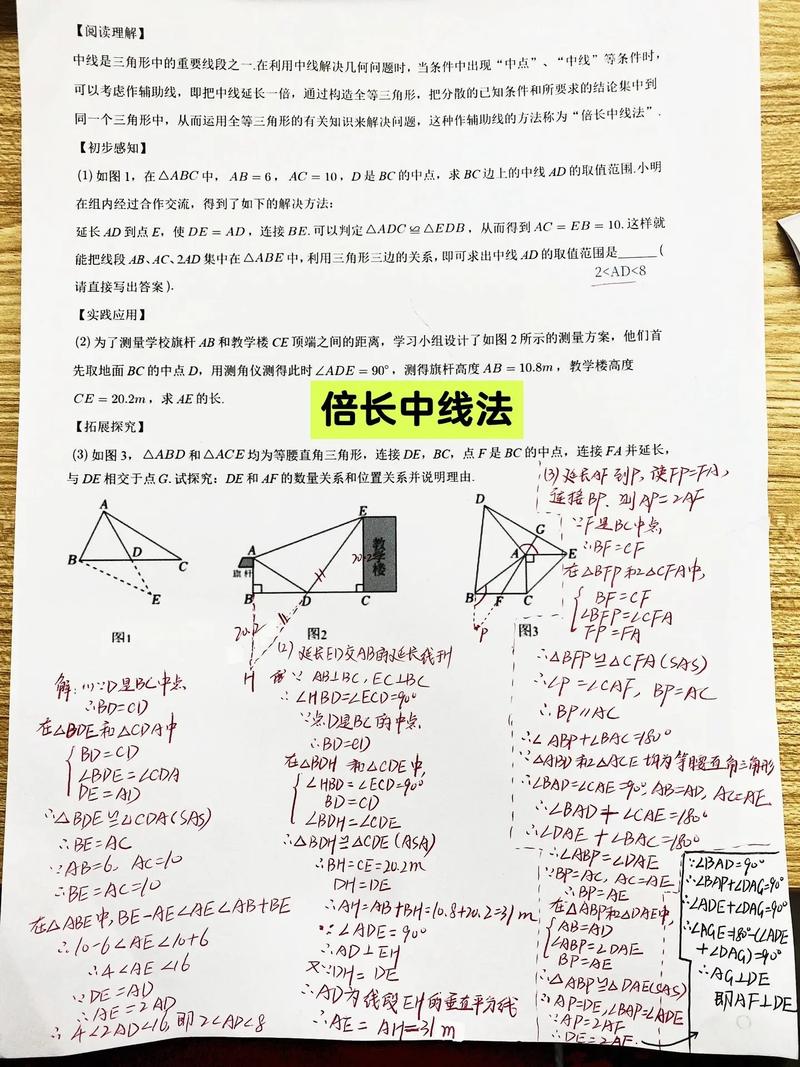 【阅读理解】
中线是三角形中的重要线段之一.在利用中线解决几何问题时，当条件中出现“中点”、“中线”等条件时，
可以考虑作辅助线，即把中线延长一倍，通过构造全等三角形，把分散的已知条件和所要求的结论集中到
同一个三角形中，从而运用全等三角形的有关知识来解决问题，这种作辅助线的方法称为“倍长中线法”.
【初步感知】
(1)如图1，在△ABC中，AB=6，AC=10，D是BC的中点，求BC边上的中线AD的取值范围.小明
在组内经过合作交流，得到了如下的解决方法：
延长AD到点E，使DE=AD，连接BE.可以判定△ADC≌△EDB，从而得到AC=EB=10.这样就
能把线段AB、AC、2AD集中在△ABE中，利用三角形三边的关系，即可求出中线AD的取值范围是______(
2<AD<8
请直接写出答案).
【实践应用】
(2)为了测量学校旗杆AB和教学楼CE顶端之间的距离，学习小组设计了如图2所示的测量方案，他们首
先取地面BC的中点D，用测角仪测得此时∠ADE=90°，测得旗杆高度AB=10.8m，教学楼高度
CE=20.2m，求AE的长.
倍长中线法
【拓展探究】
(3)如图3，△ABD和△ACE均为等腰直角三角形，连接DE，BC，点F是BC的中点，连接FA并延长，
与DE相交于点G.试探究：DE和AF的数量关系和位置关系并说明理由.
A
B
D
C
E
图1
E
A
旗杆
教学楼
20.2
B
D
C
20.2
H
图2
D
G
A
E
B
F
C
P
图3
解：(1)∵D是BC中点
∴BD=CD
在△BDE和△CDA中
BD=CD
∠BDE=∠CDA
DE=AD
∴△BDE≌△CDA(SAS)
∴BE=AC
∵AB=6，AC=10
∴BE=AC=10
在△ABE中，BE-AE<AE<AB+BE
∴10-6<AE<10+6
∴4<AE<16
∵DE=AD
∴AE=2AD
∴4<2AD<16，即2<AD<8
(2)延长ED交AB的延长线于H
∵AB⊥BC，EC⊥BC
∴∠HBD=∠ECD=90°
∵点D是BC的中点
∴BD=CD
在△BDH和△CDE中，
∠HBD=∠ECD=90°
BD=CD
∠BDH=∠CDE
∴△BDH≌△CDE(ASA)
∴BH=CE=20.2m
DH=DE
∴AH=AB+BH=10.8+20.2=31m
∵∠ADE=90°
∴AD⊥EH
又∵DH=DE
∴AD为线段EH的垂直平分线
∴AE=AH=31m
(3)延长AF到P，使FP=FA，
连接BP.则AP=2AF
∵F是BC中点，
∴BF=CF
在△BFP和△CFA中，
BF=CF
∠BFP=∠CFA
FP=FA
∴△BFP≌△CFA(SAS)
∴∠P=∠CAF，BP=AC
∴BP∥AC
∴∠ABP+∠BAC=180°
∵△ABD和△ACE均为等腰直角三角形
∴∠BAD=∠CAE=90°，AB=AD，AC=AE
∴∠BAD+∠CAE=180°
∴∠DAE+∠BAC=180°
∴∠ABP=∠DAE
∵BP=AC，AC=AE
∴BP=AE
在△ABP和△DAE中，
AB=AD
∠ABP=∠DAE
BP=AE
∴△ABP≌△DAE(SAS)
∴AP=DE，∠BAP=∠ADE
∵AP=2AF
∴DE=2AF.
∵∠BAD=90°
∴∠BAP+∠DAG=90°
∴∠ADE+∠DAG=90°
∴∠AGE=180°-(∠ADE
+∠DAG)=90°
∴AG⊥DE
即AF⊥DE